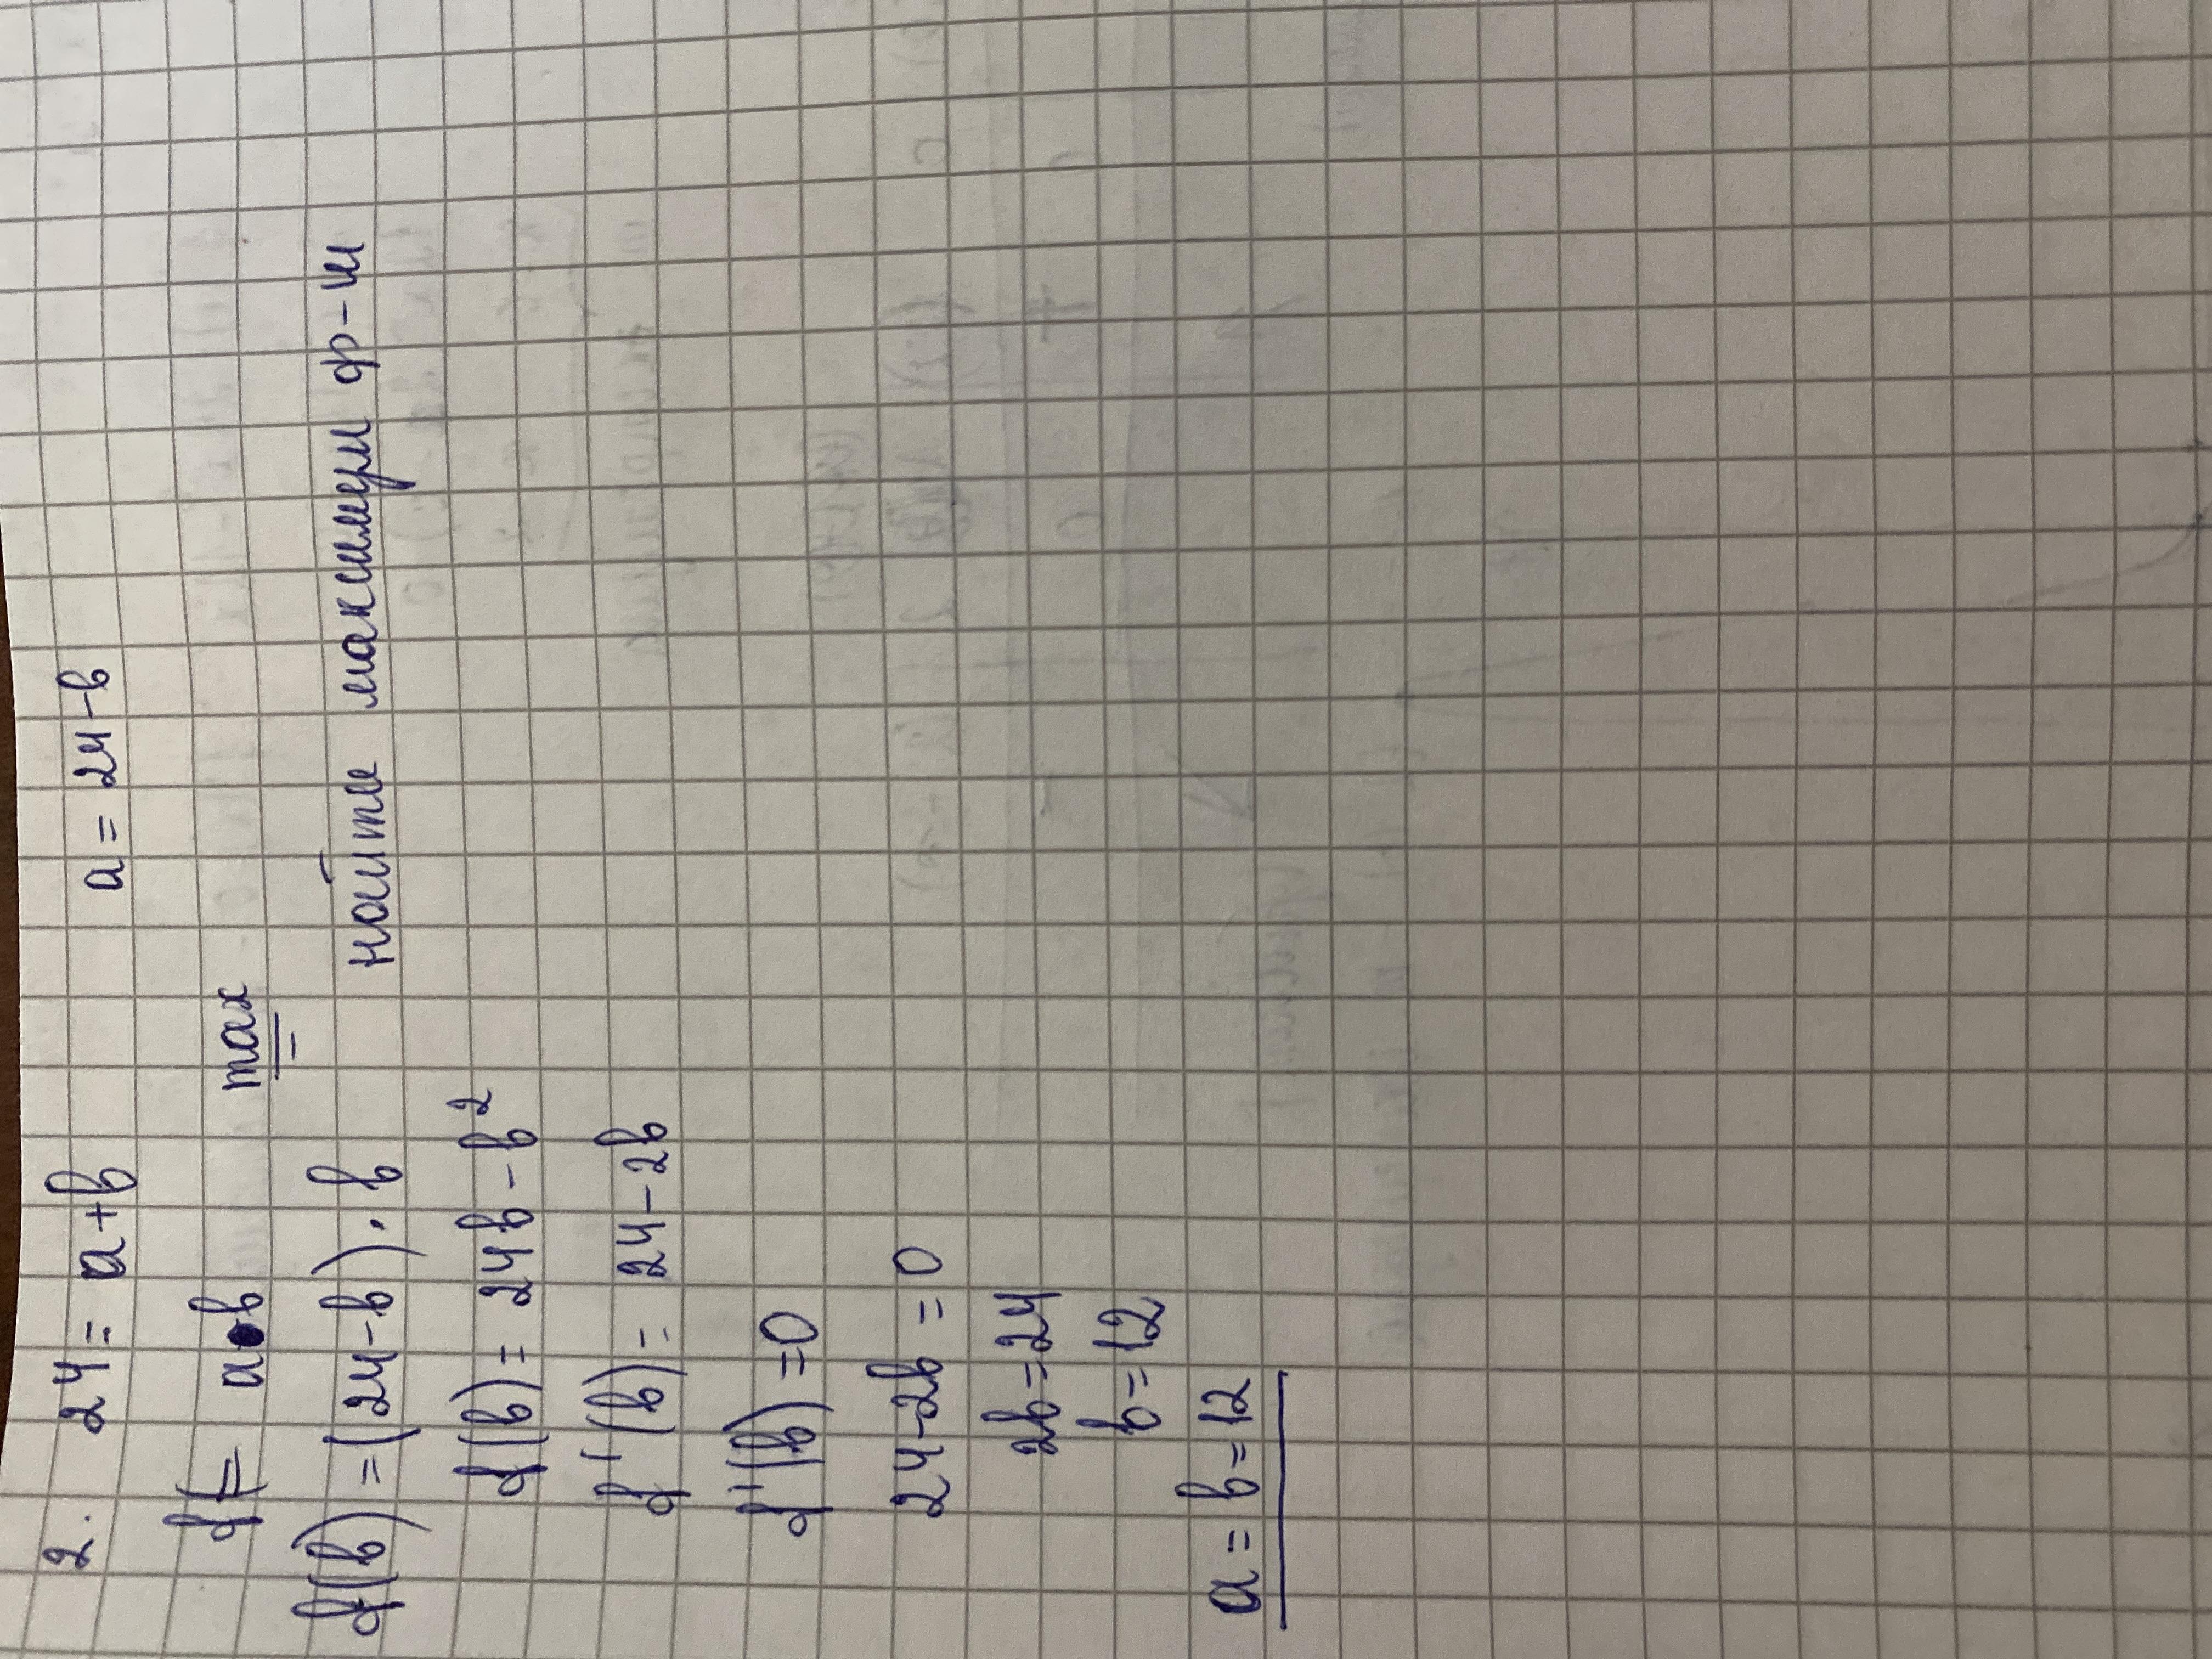 2. 24 = a+b a = 24-b
f = a•b max
f(b) = (24-b)·b найти максимум ф-и
f(b) = 24b - b²
f'(b) = 24-2b
f'(b) = 0
24-2b = 0
2b=24
b=12
a = b = 12